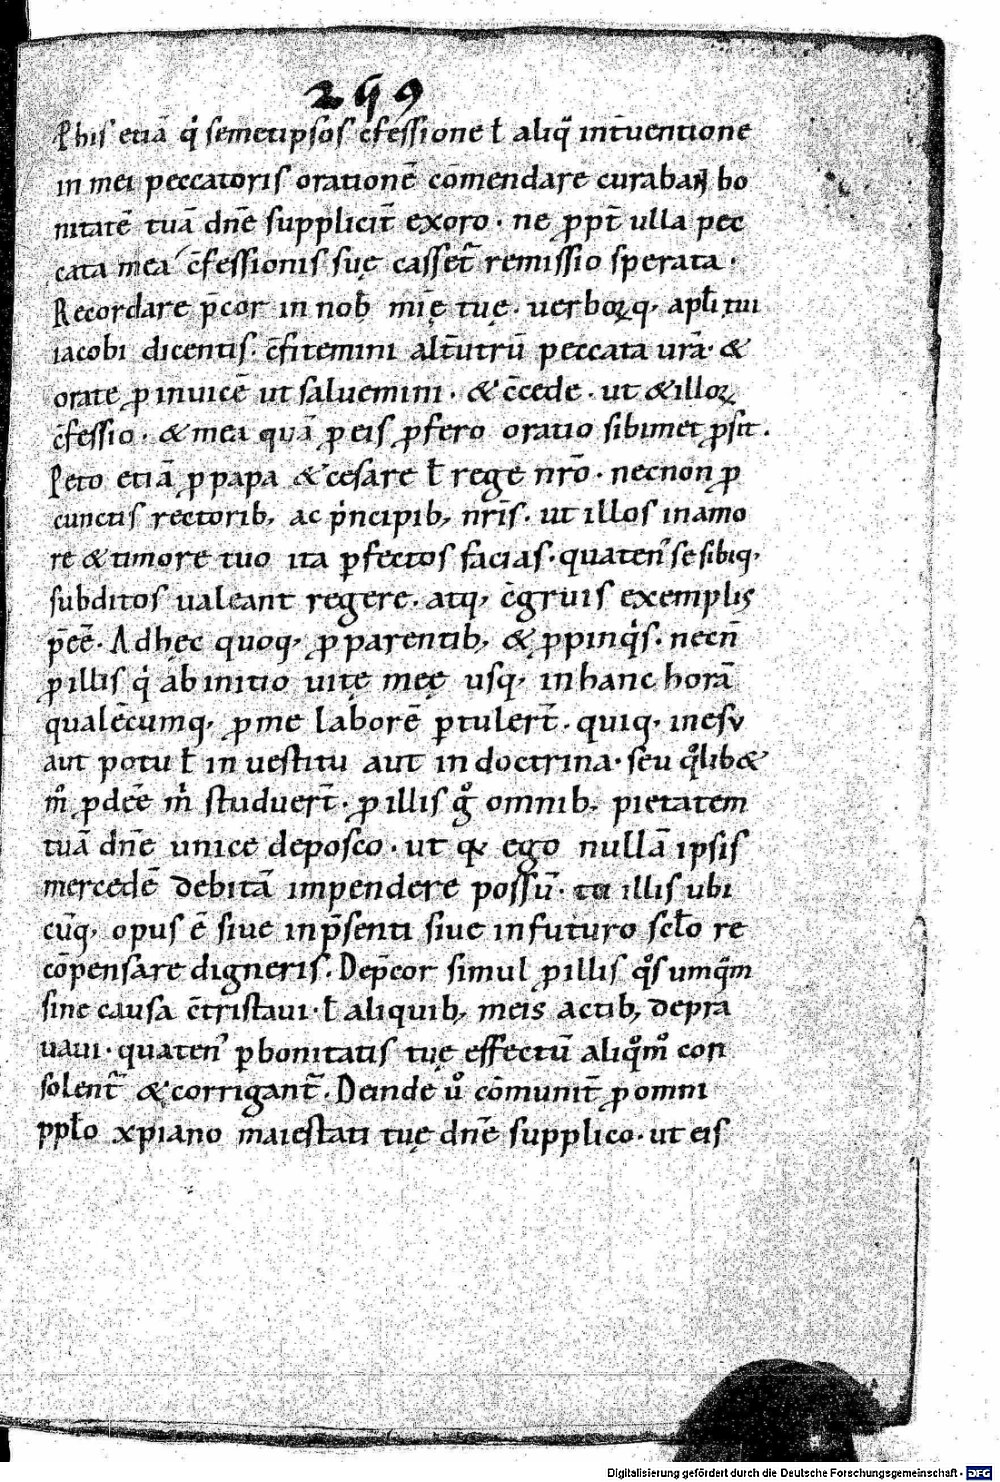 249
Phis etiā qͥ semetipsos c̄fessione ł aliqͣ int̄uentione
in mei peccatoris orationē cōmendare curabaꝶ bo
nitatē tuā dn̄e supplicit̄ exoro · ne ꝓpt̄ ulla pec
cata mea c̄fessionis suę casset᷑ remissio sperata ·
Recordare p̄cor in nob̄ mię̄ tuę · uerboꝝq, apłi tui
iacobi dicentis · c̄fitemini alt̄utrū peccata ur̄a · &
orate ꝓ inuicē ut saluemini · & c̄cede · ut & illoꝝ
c̄fessio · & mea quā ꝓ eis ꝓfero oratio sibimet ꝓsit .
Peto etiā ꝓ papa & cesare ł rege nr̄o · necnon ꝓ
cunctis rectorib, ac pͥncipib, nr̄is . ut illos in amo
re & timore tuo ita ꝑfectos facias · quaten᾽ se sibiq,
subditos ualeant regere . atq, c̄gruis exemplis
p̄eē . Ad hęc quoq, ꝓ parentib, & ꝓpinqͥs . necn̄
ꝓ illis qͥ ab initio uitę meę usq, in hanc horā
qualēcumq, ꝓ me laborē ꝑtulert̄ . quiq, in esu
aut potu ł in uestitu aut in doctrina · seu qͦlib&
mͦ ꝓdeē mͥ studuert̄ . ꝓ illis gͦ omnib, pietatem
tuā dn̄e unice deposco · ut qꝛ ego nullā ipsis
mercedē debitā impendere possū · tu illis ubi
cūq, opus ē siue in p̄senti siue in futuro scło re
cōpensare digneris . Dep̄cor simul ꝓ illis qͦs umqͣm
sine causa c̄tristaui · ł aliquib, meis actib, depra
uaui · quaten᾽ ꝑ bonitatis tuę effectū aliqͦmͦ con
solent᷑ & corrigant᷑ . Deinde uͦ cōmunit̄ ꝓ omni
ppło xpiano maiestati tuę dn̄e supplico · ut eis
Digitalisierung gefördert durch die Deutsche Forschungsgemeinschaft - DFG